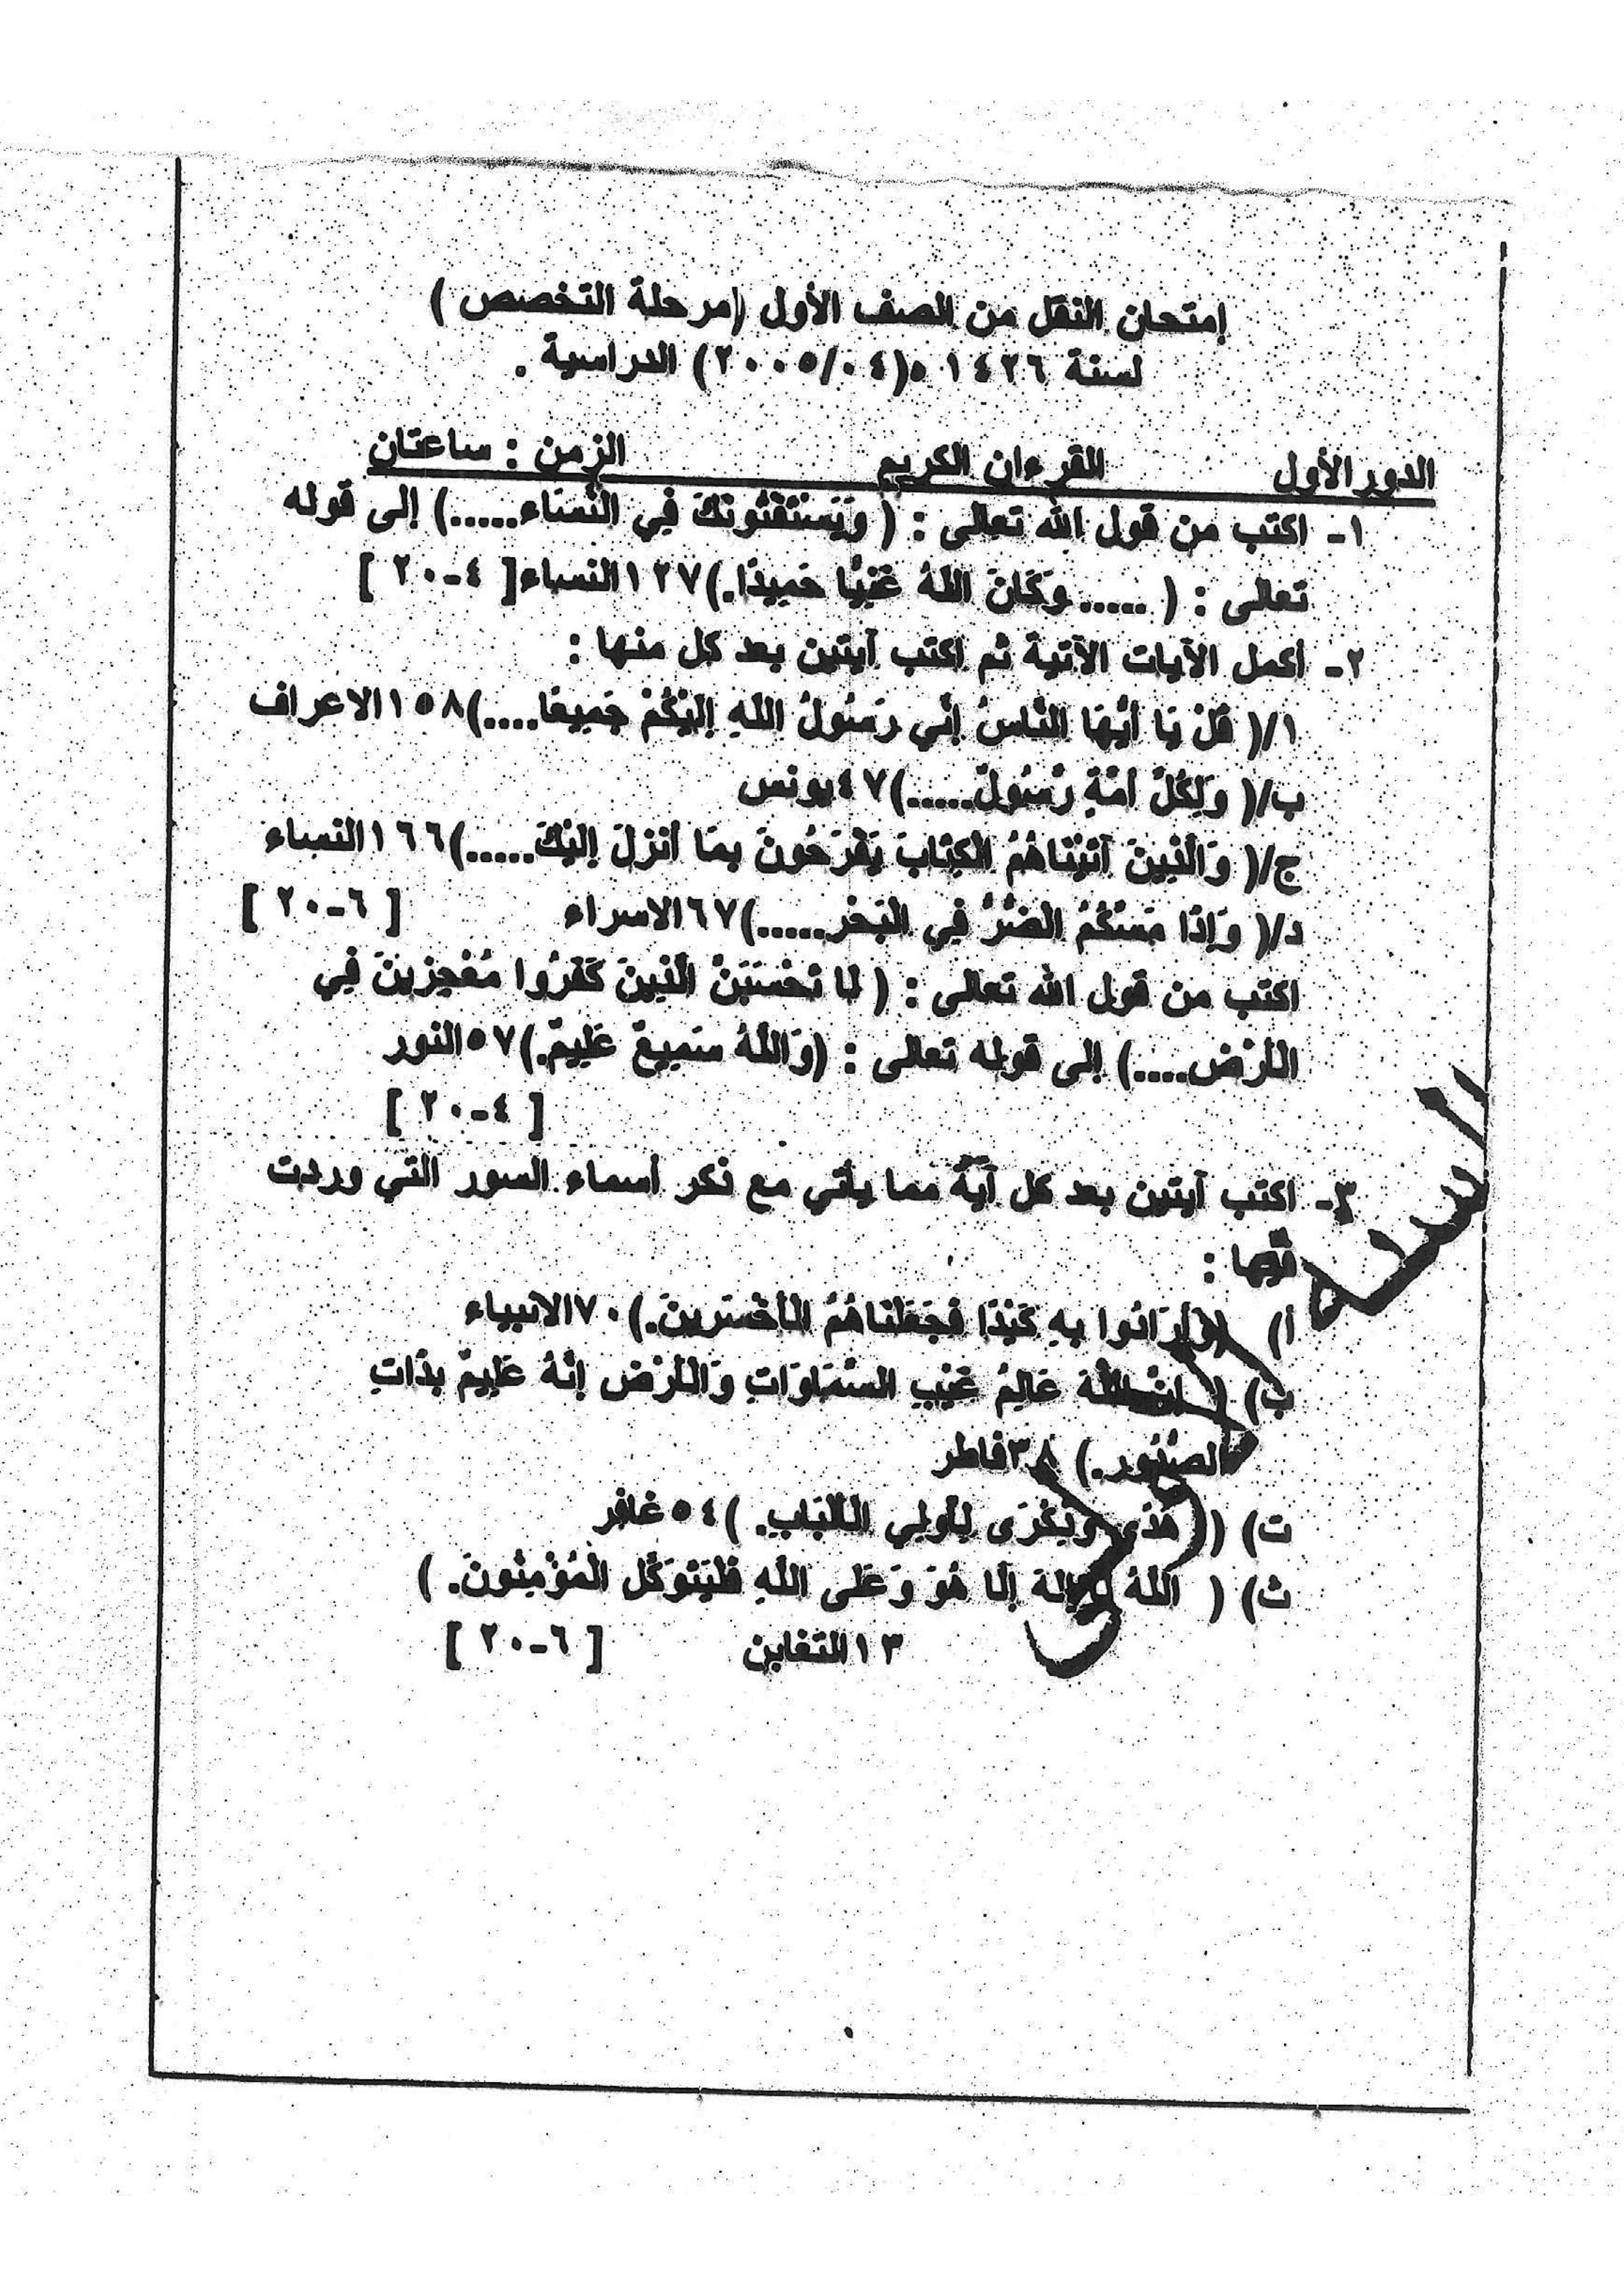 إمتحان النقل من الصف الأول (مرحلة التخصص )
لسنة ١٤٢٦ ه(٢٠٠٥/٠٤) الدراسية .
الدور الأول القرءان الكريم الزمن : ساعتان
١- اكتب من قول الله تعالى : ( وَيَسْتَفْتُونَكَ فِي النِّسَاء.....) إلى قوله
تعالى : ( ..... وَكَانَ اللّهُ غَنِيًّا حَمِيدًا.)١٢٧النساء[ ٤-٢٠ ]
٢- أكمل الآيات الآتية ثم اكتب آيتين بعد كل منها :
١/( قُلْ يَا أَيُّهَا النَّاسُ إِنِّي رَسُولُ اللّهِ إِلَيْكُمْ جَمِيعًا....)١٥٨الاعراف
ب/( وَلِكُلِّ أُمَّةٍ رَّسُولٌ.....)٤٧يونس
ج/( وَالَّذِينَ آتَيْنَاهُمُ الْكِتَابَ يَفْرَحُونَ بِمَا أُنزِلَ إِلَيْكَ.....)١٦٦النساء
د/( وَإِذَا مَسَّكُمُ الْضُّرُّ فِي الْبَحْرِ.....)٦٧الاسراء [ ٦-٢٠ ]
اكتب من قول الله تعالى : ( لَا تَحْسَبَنَّ الَّذِينَ كَفَرُوا مُعْجِزِينَ فِي
الْأَرْضِ....) إلى قوله تعالى : (وَاللَّهُ سَمِيعٌ عَلِيمٌ.)٥٧النور
[ ٤-٢٠ ]
٣- اكتب آيتين بعد كل آية مما يأتي مع ذكر أسماء السور التي وردت
فيها :
أ) (وَأَرَادُوا بِهِ كَيْدًا فَجَعَلْنَاهُمُ الْأَخْسَرِينَ.)٧٠الانبياء
ب) ( إِنَّ اللَّهَ عَالِمُ غَيْبِ السَّمَاوَاتِ وَالْأَرْضِ إِنَّهُ عَلِيمٌ بِذَاتِ
الصُّدُورِ.) ٣٨فاطر
ت) ( هُدًى وَذِكْرَى لِأُولِي الْأَلْبَابِ. )٥٤غافر
ث) ( اللَّهُ لَا إِلَهَ إِلَّا هُوَ وَعَلَى اللَّهِ فَلْيَتَوَكَّلِ الْمُؤْمِنُونَ. )
١٣التغابن [ ٦-٢٠ ]